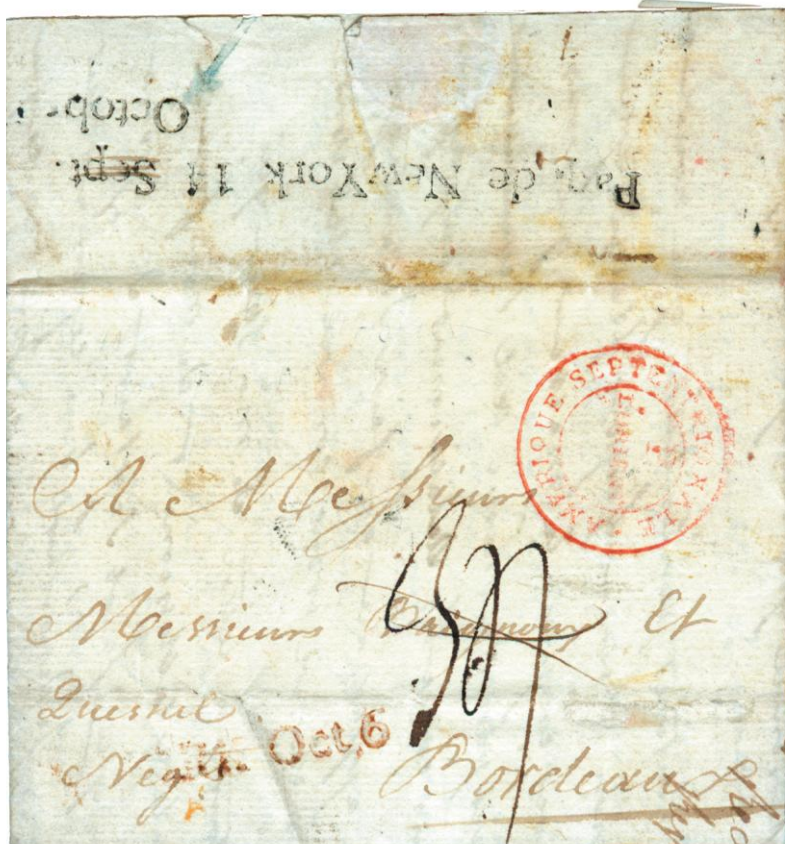 Octobr
Paq. de NewYork 11 Sept.
AMÉRIQUE SEPTENTRIONALE
A Messieurs
Messieurs Et
Quesnel
Neg
Oct. 6
Bordeaux